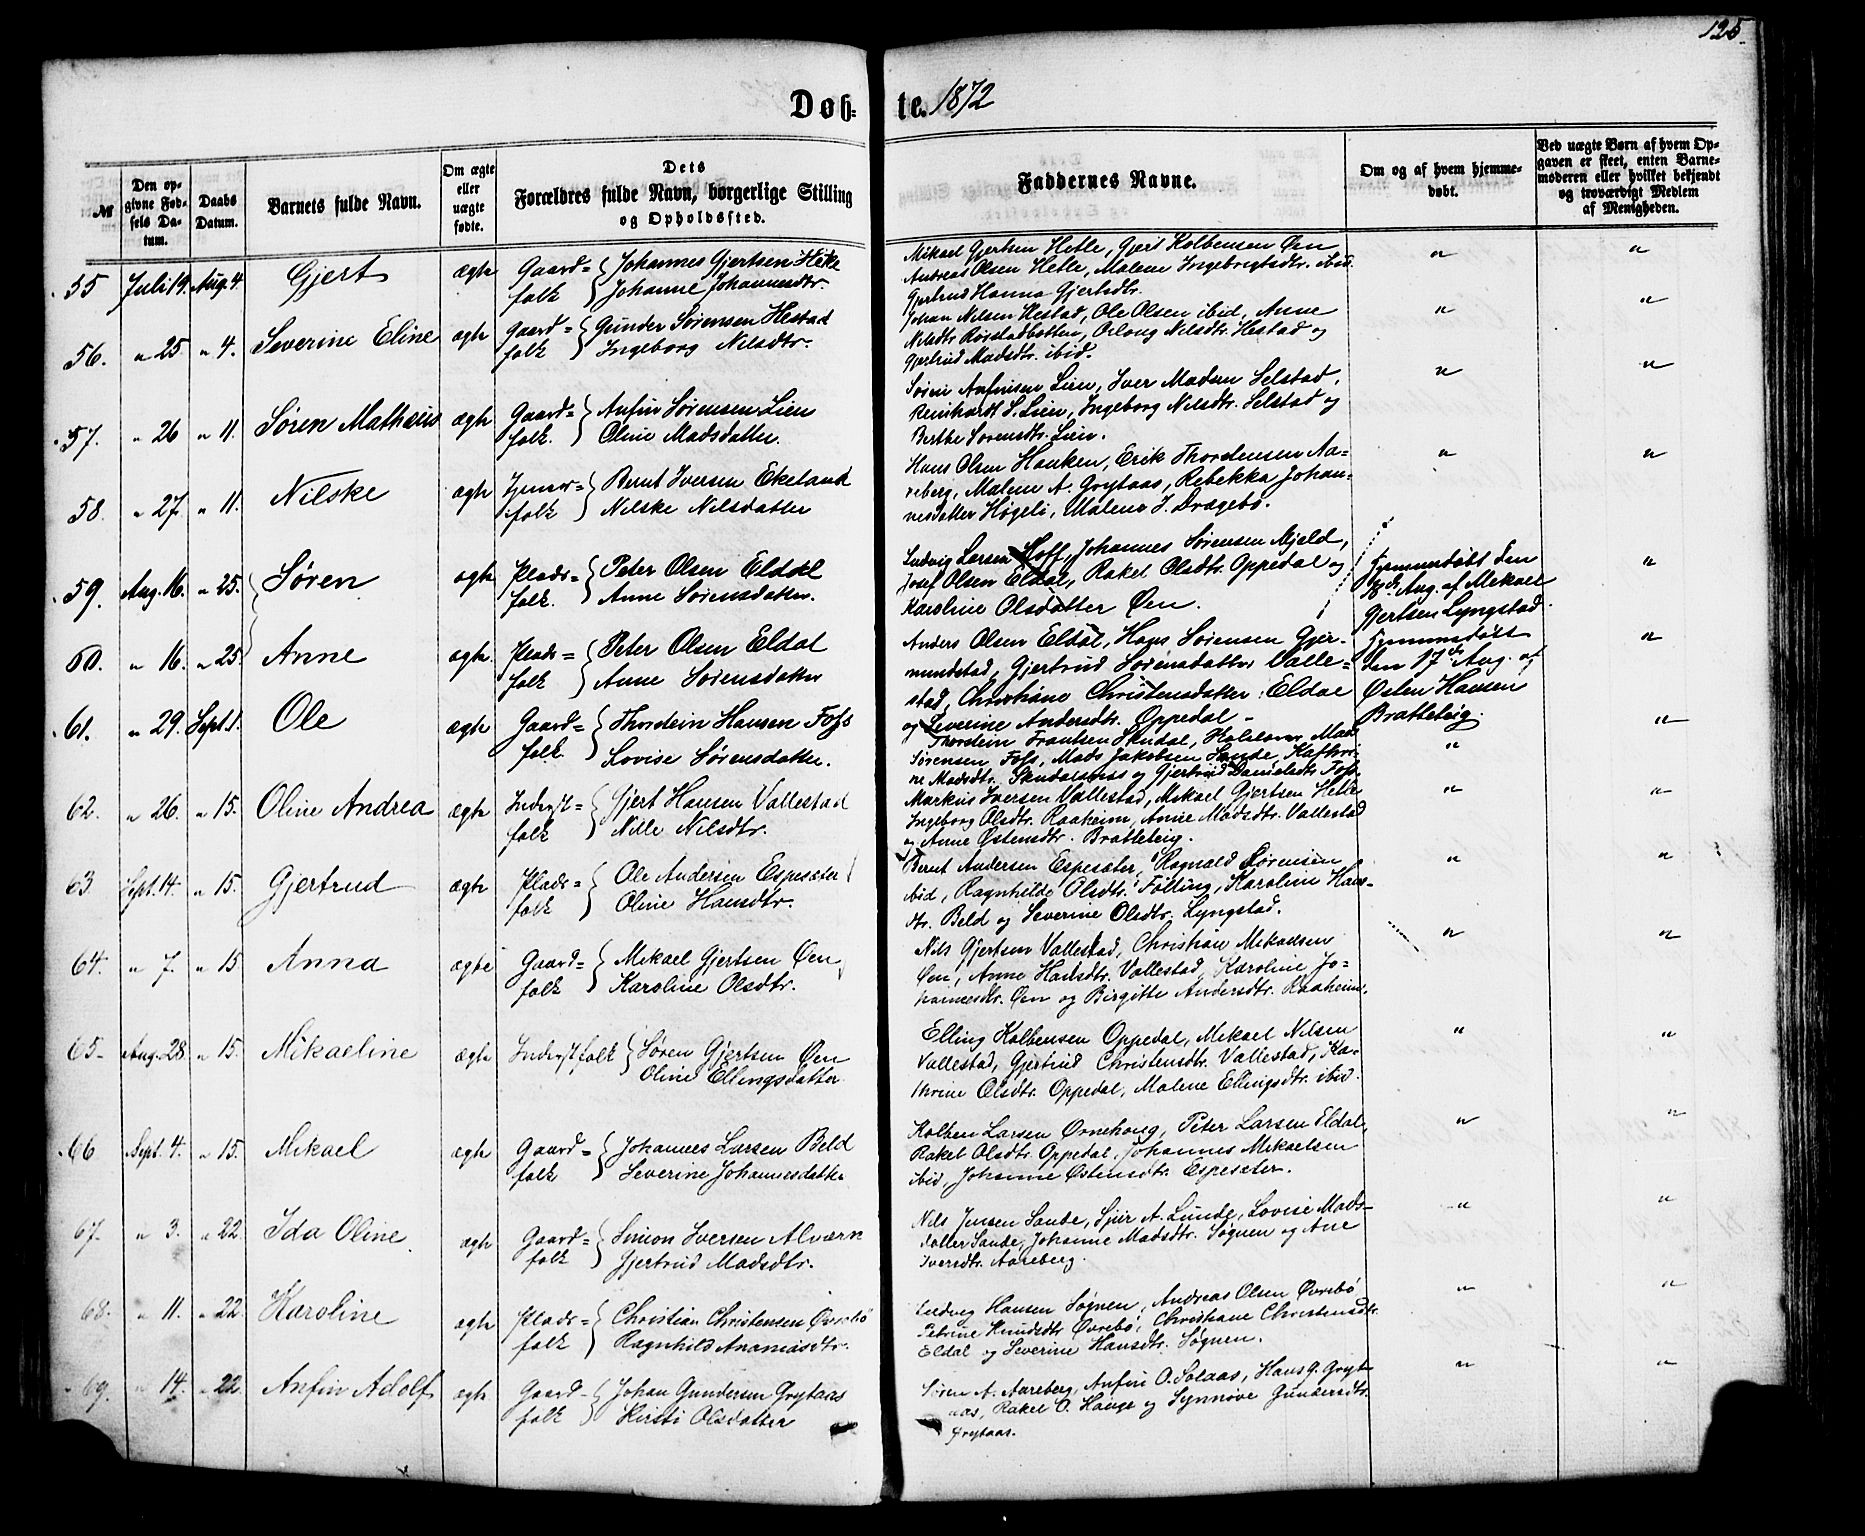 125.
Døb-te. 1872
№
Den opgivne Fødsels Datum.
Daabs Datum.
Barnets fulde Navn.
Om ægte eller uægte fødte.
Dets Forældres fulde Navn, borgerlige Stilling og Opholdssted.
Faddernes Navne.
Om og af hvem hjemmedøbt.
Ved uægte Børn af hvem Opgaven er skeet, enten Barnemoderen eller hvilket bekjendt og troværdigt Medlem af Menigheden.
55 Juli 19. Aug. 4. Gjert ægte Gaard= folk { Johannes Gjertsen Hetle
Johanne Johannesdtr.
Mikael Gjertsen Hetle, Gjert Kolbensen Øen
Andreas Olsen Hetle, Malene Ingebrigtsdtr. ibid.
Gjertrud Hanna Gjertsdtr.
" "
56. " 25. " 4. Severine Eline ægte Gaard= folk { Gunder Sørensen Hestad
Ingeborg Nilsdtr.
Johan Nilsen Hestad, Ole Olsen ibid, Anne
Nilsdtr. Rørstadbotten, Oelong Nilsdtr. Hestad og
Gjertrud Madsdtr. ibid.
" "
57. " 26 " 11. Søren Mathæus ægte Gaard= folk. { Anfin Sørensen Lien
Oline Madsdatter.
Søren Anfinsen Lien, Iver Madsen Selstad,
Reinhardt S. Lien, Ingeborg Nilsdtr. Selstad og
Berthe Sørensdtr. Lien.
" "
58. " 27. " 11. Nilske ægte Tjener= folk { Bernt Iversen Ekeland
Nilske Nilsdatter
Hans Olsen Hauken, Erik Thorstensen Aa-
reberg, Malene A. Grytaas, Rebekka Johan-
nesdatter Høgeli, Malene J. Dragebø.
" "
59. Aug. 16. " 25. Søren ægte Plads= folk. { Peter Olsen Eldal
Anne Sørensdatter.
Ludvig Larsen Hoff, Johannes Sørensen Mjeld,
Josef Olsen Eldal, Rakel Olsdtr. Oppedal og
Karoline Olsdatter Øen.
Hjemmedøbt den
18de Aug. af Mikael
Gjertsen Lyngstad.
"
60. " 16. " 25. Anne ægte. Plads= folk { Peter Olsen Eldal
Anne Sørensdatter
Anders Olsen Eldal, Hans Sørensen Gjer-
mundstad, Gjertrud Sørensdatter Valle-
stad, Christiane Christensdatter Eldal
og Severine Andersdtr. Oppedal.
Hjemmedøbt
den 17de Aug. af
Østen Hansen
Bratteteig.
"
61. " 29. Sept. 1. Ole ægte Gaard= folk { Thorstein Hansen Foss
Lovise Sørensdatter.
Thorstein Frantsen Skudal, Mads
Sørensen Foss, Mads Jakobsen Sande, Kathri-
ne Madsdtr. Skudalsnæss og Gjertrud Danielsdtr. Foss.
" "
62. " 26. " 15. Oline Andrea ægte Inderst= folk { Gjert Hansen Vallestad
Nille Nilsdtr.
Markus Iversen Vallestad, Mikael Gjertsen Hetle
Ingeborg Olsdtr. Raaheim, Anne Madsdtr. Vallestad
og Anne Østensdtr. Bratteteig.
" "
63 Sept. 14. " 15. Gjertrud ægte Plads= folk { Ole Andersen Espesæter
Oline Hansdtr.
Bernt Andersen Espesæter, Ragnald Sørensen
ibid, Ragnhilde Olsdtr. Følling, Karoline Hans-
dtr. Beld og Severine Olsdtr. Lyngstad.
" "
64. " 7. " 15. Anna ægte Gaard= folk { Mikael Gjertsen Øen
Karoline Olsdtr.
Nils Gjertsen Vallestad, Christian Mikaelsen
Øen, Anne Hansdtr. Vallestad, Karoline Jo-
hannesdtr. Øen og Birgitte Andersdtr. Raaheim.
" "
65. Aug. 28. " 15. Mikaeline ægte Inderstfolk { Søren Gjertsen Øen
Oline Ellingsdatter
Elling Kolbensen Oppedal, Mikael Nilsen
Vallestad, Gjertrud Christensdtr. Vallestad, Ka-
thrine Olsdtr. Oppedal, Malene Ellingsdtr. ibid.
" "
66 Sept. 4. " 15. Mikael ægte Gaard= folk { Johannes Larsen Beld
Severine Johannesdatter
Kolben Larsen Ørnehoug, Peter Larsen Eldal,
Rakel Olsdtr. Oppedal, Johannes Mikaelsen
ibid, Johanne Østensdtr. Espesæter.
" "
67. " 3. " 22. Ida Oline ægte Gaard= folk { Simon Iversen Alværn
Gjertrud Madsdtr.
Nils Jensen Sande, Sjur A. Lunde, Lovise Mads-
datter Sande, Johanne Madsdtr. Søgnen og Ane
Iversdtr. Aareberg.
" "
68. " 11. " 22. Karoline ægte Plads= folk { Christian Christensen Øvrebø
Ragnhild Ananiasdtr.
Ludvig Hansen Søgnen, Andreas Olsen Øvrebø
Petrine Knudsdtr. Øvrebø, Christiane Christensdtr.
Eldal og Severine Hansdtr. Søgnen.
" "
69. " 14. " 22. Anfin Adolf ægte Gaard- folk { Johan Gundersen Grytaas
Kirsti Olsdatter
Søren A. Aareberg, Anfin O. Solaas, Hans G. Gryt-
aas, Rakel O. Hauge og Synnøve Gundersdtr.
Grytaas.
" "